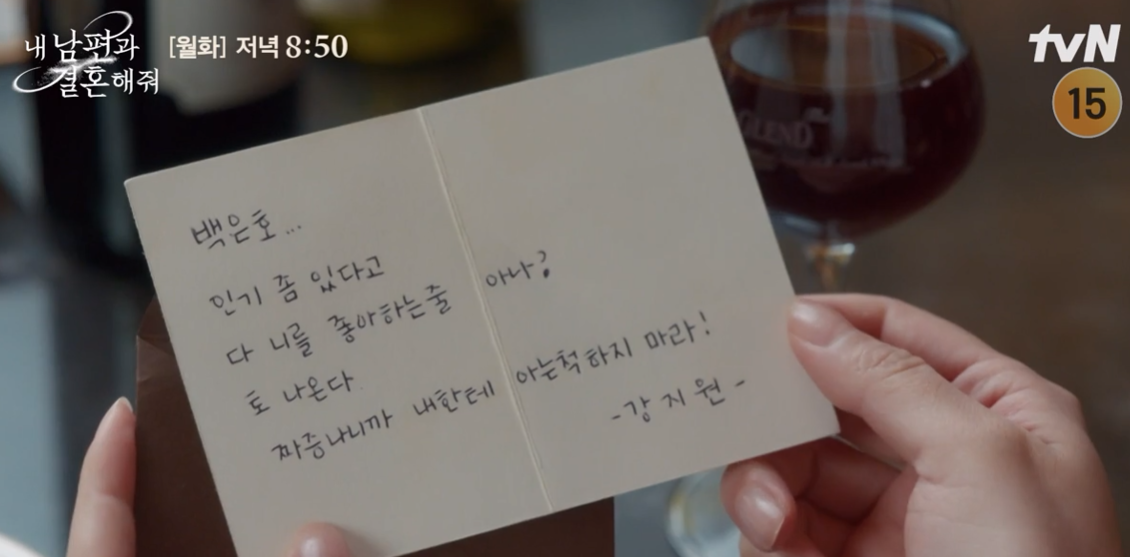 내 남편과
결혼해줘
[월화] 저녁 8:50
tvN
15
GLEND
백은호...
인기 좀 있다고
다 니를 좋아하는줄 아나?
토 나온다.
짜증나니까 내한테 아는척하지 마라!
-강지원-